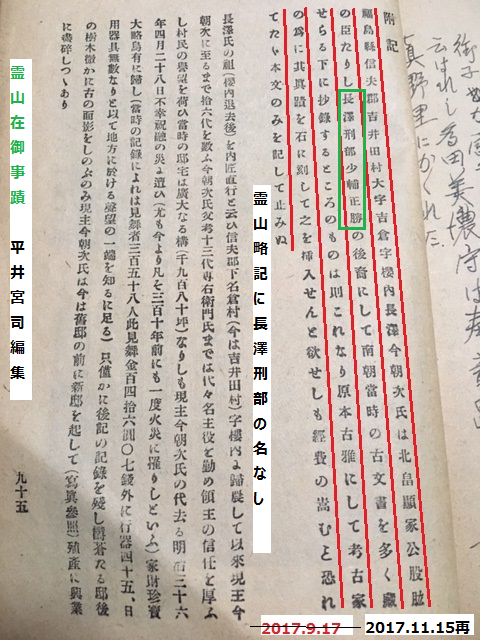 附記
福島縣信夫郡吉井田村大字吉倉字樓內長澤今朝次氏は北畠顯家公股肱
の臣たりし長澤刑部少輔正勝の後裔にして南朝當時の古文書を多く藏
せらる下に抄錄するところのものは則これなり原本古雅にして考古家
の爲に其眞蹟を石に刻して之を挿入せんと欲せしも經費の嵩むと恐れ
てたゞ本文のみを記して止みぬ
霊山略記に長澤刑部の名なし
長澤氏の祖(樓內退去後)を內匠直行と云ひ信夫郡下名倉村(今は吉井田村)字樓內に歸農して以來現主今
朝次に至るまで拾六代を數ふ今朝次氏父考十三代専右衛門氏までは代々名主役を勤め領主の信任を厚ふ
し村民の譽望を荷ひ當時の邸宅は廣大なる構(千九百八十坪)なりしも現主今朝次氏の代去る明治三十六
年四月二十八日不幸祝融の災に遭ひ(尤も今より凡そ三百十年前にも一度火災に罹りしといふ)家財珍寶
大略烏有に歸し(當時の記錄によれは見舞者三百五十八人此見舞金百四拾六圓〇七錢外に行器四十五、日
用器具無數なりと以て地方に於ける聲望の一端を知るに足る)只僅かに後記の記錄を殘し欝蒼たる邸後
の樹木微かに古の面影をしのぶのみ現主今朝次氏は今は舊邸の前に新邸を起して(寫眞參照)殖産に興業
に つゝあり
九十五
霊山在御事蹟 平井宮司編集
2017.9.17
2017.11.15再